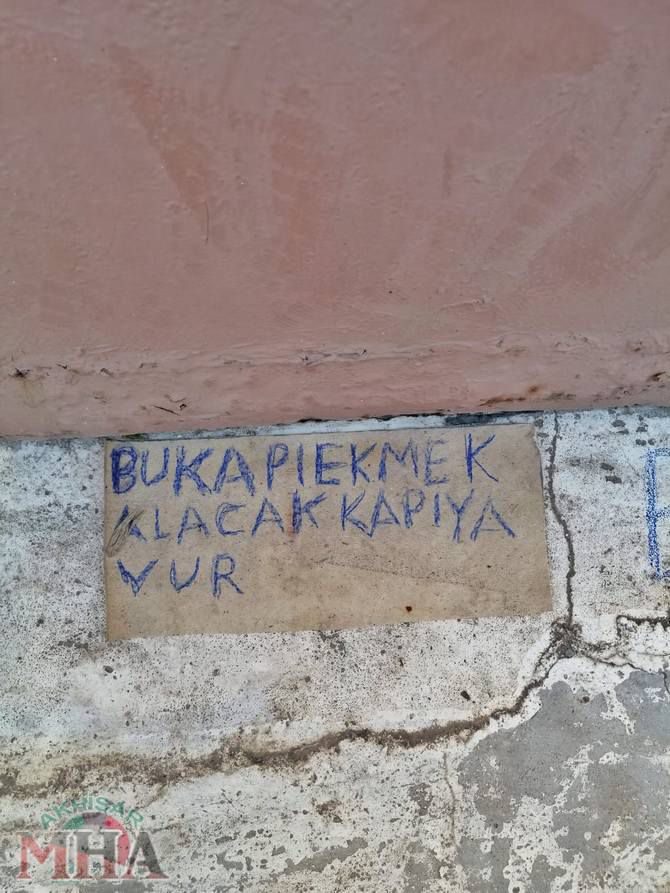 BUKAPIEKMEK
ALACAKKAPIYA
VUR
AKHİSAR
MHA